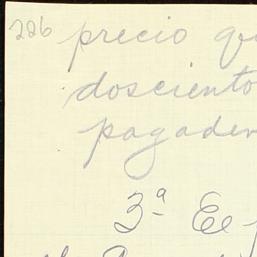 226 precio qu
dosciento
pagader
3ª El